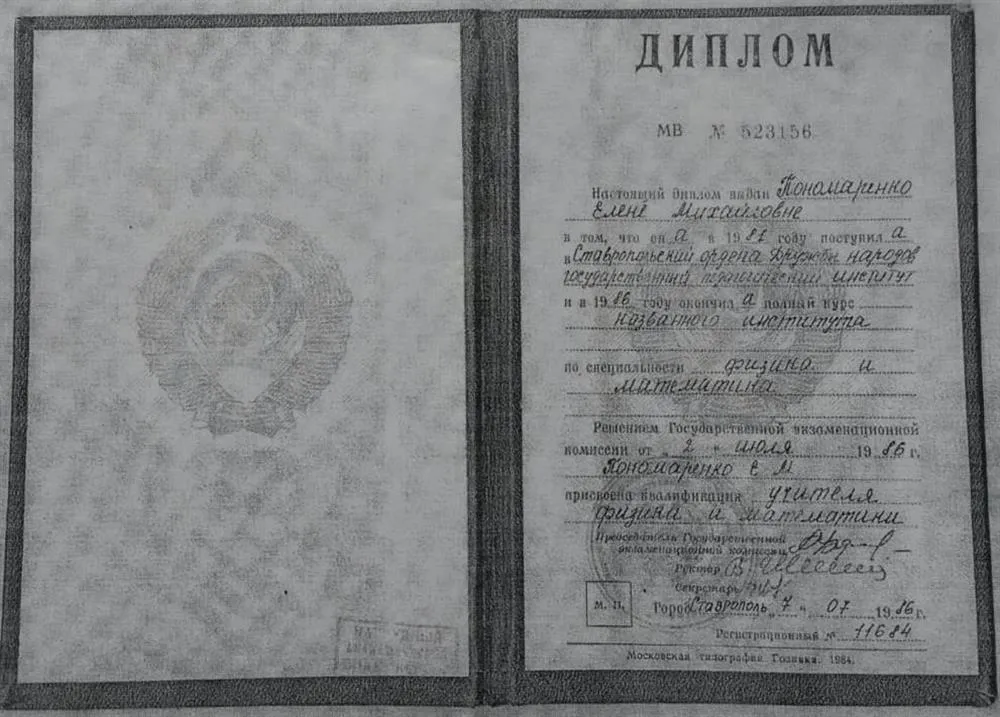 ДИПЛОМ
МВ № 523156
Настоящий диплом выдан Пономаренко
Елене Михайловне
в том, что он а в 1981 году поступил а
в Ставропольский ордена Дружбы народов
государственный педагогический институт
и в 1986 году окончил а полный курс
названного института
по специальности физика и
математика
Решением Государственной экзаменационной
комиссии от „ 2 “ июля 1986 г.
Пономаренко Е М
присвоена квалификация учителя
физики и математики
Председатель Государственной
экзаменационной комиссии
Ректор
Секретарь
М. П.
Город Ставрополь „ 7 “ 07 1986 г.
Регистрационный № 11684
Московская типография Гознака. 1984.